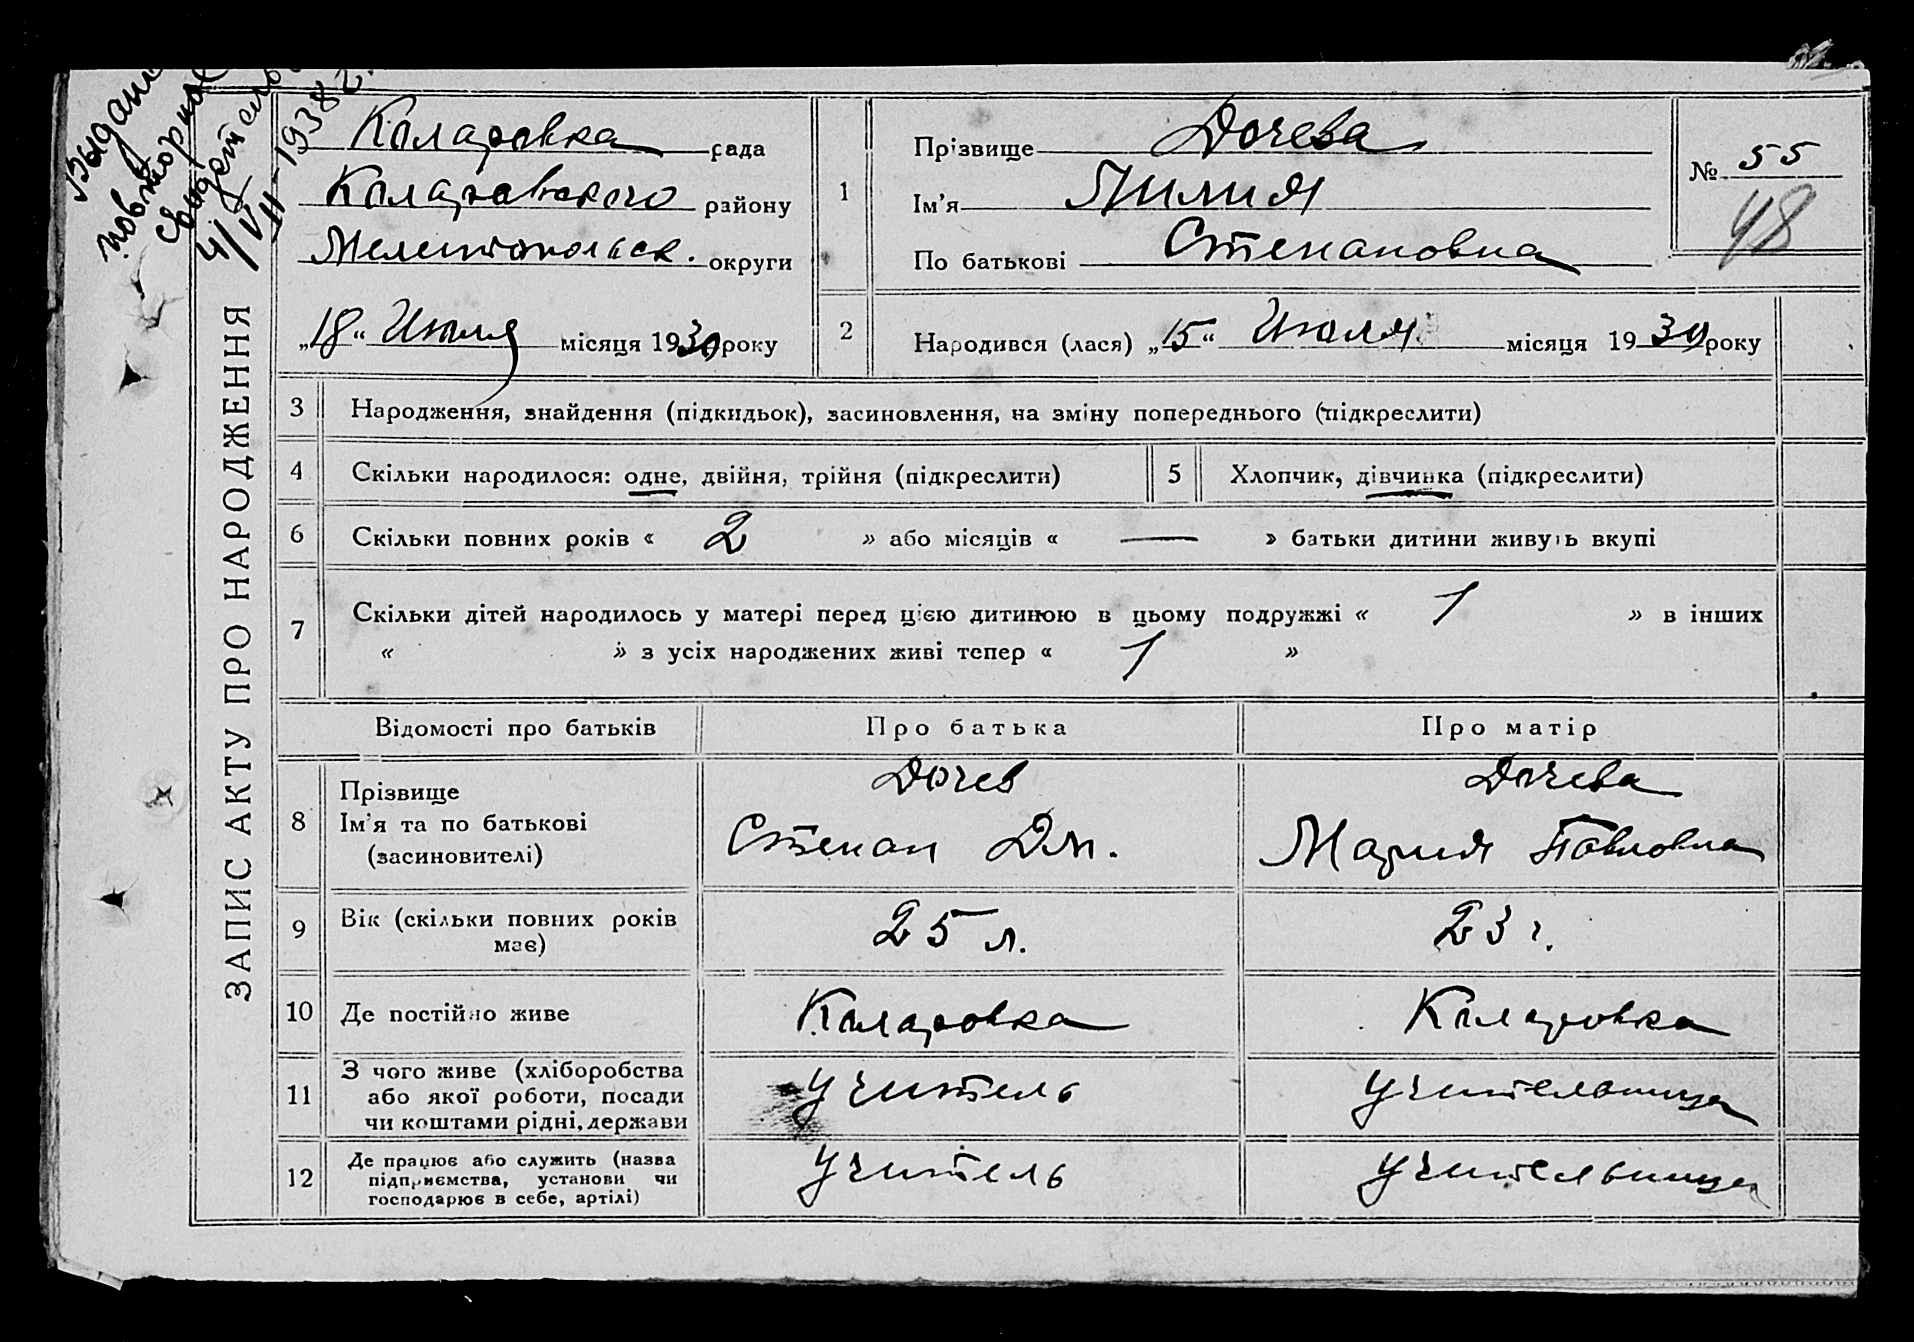 Выдано
повторное
свидетельство
4/VII-1938 г.
ЗАПИС АКТУ ПРО НАРОДЖЕННЯ
Коларовка рада
Коларовского району
Мелитопольск. округи
„18“ Июля місяця 1930 року
1
Прізвище Дочева
Ім’я Лилия
По батькові Степановна
№ 55
48
2
Народився (лася) „15“ Июля місяця 1930 року
3 Народження, знайдення (підкидьок), засиновлення, на зміну попереднього (підкреслити)
4 Скільки народилося: одне, двійня, трійня (підкреслити)
5 Хлопчик, дівчинка (підкреслити)
6 Скільки повних років « 2 » або місяців « — » батьки дитини живуть вкупі
7 Скільки дітей народилось у матері перед цією дитиною в цьому подружжі « 1 » в інших
« » з усіх народжених живі тепер « 1 »
Відомості про батьків Про батька Про матір
8 Прізвище Дочев Дочева
Ім’я та по батькові Степан Дм. Мария Павловна
(засиновителі)
9 Вік (скільки повних років 25 л. 23 г.
має)
10 Де постійно живе Коларовка Коларовка
11 З чого живе (хліборобства
або якої роботи, посади учитель учительница
чи коштами рідні, держави
12 Де працює або служить (назва
підприємства, установи чи учитель учительница
господарює в себе, артілі)